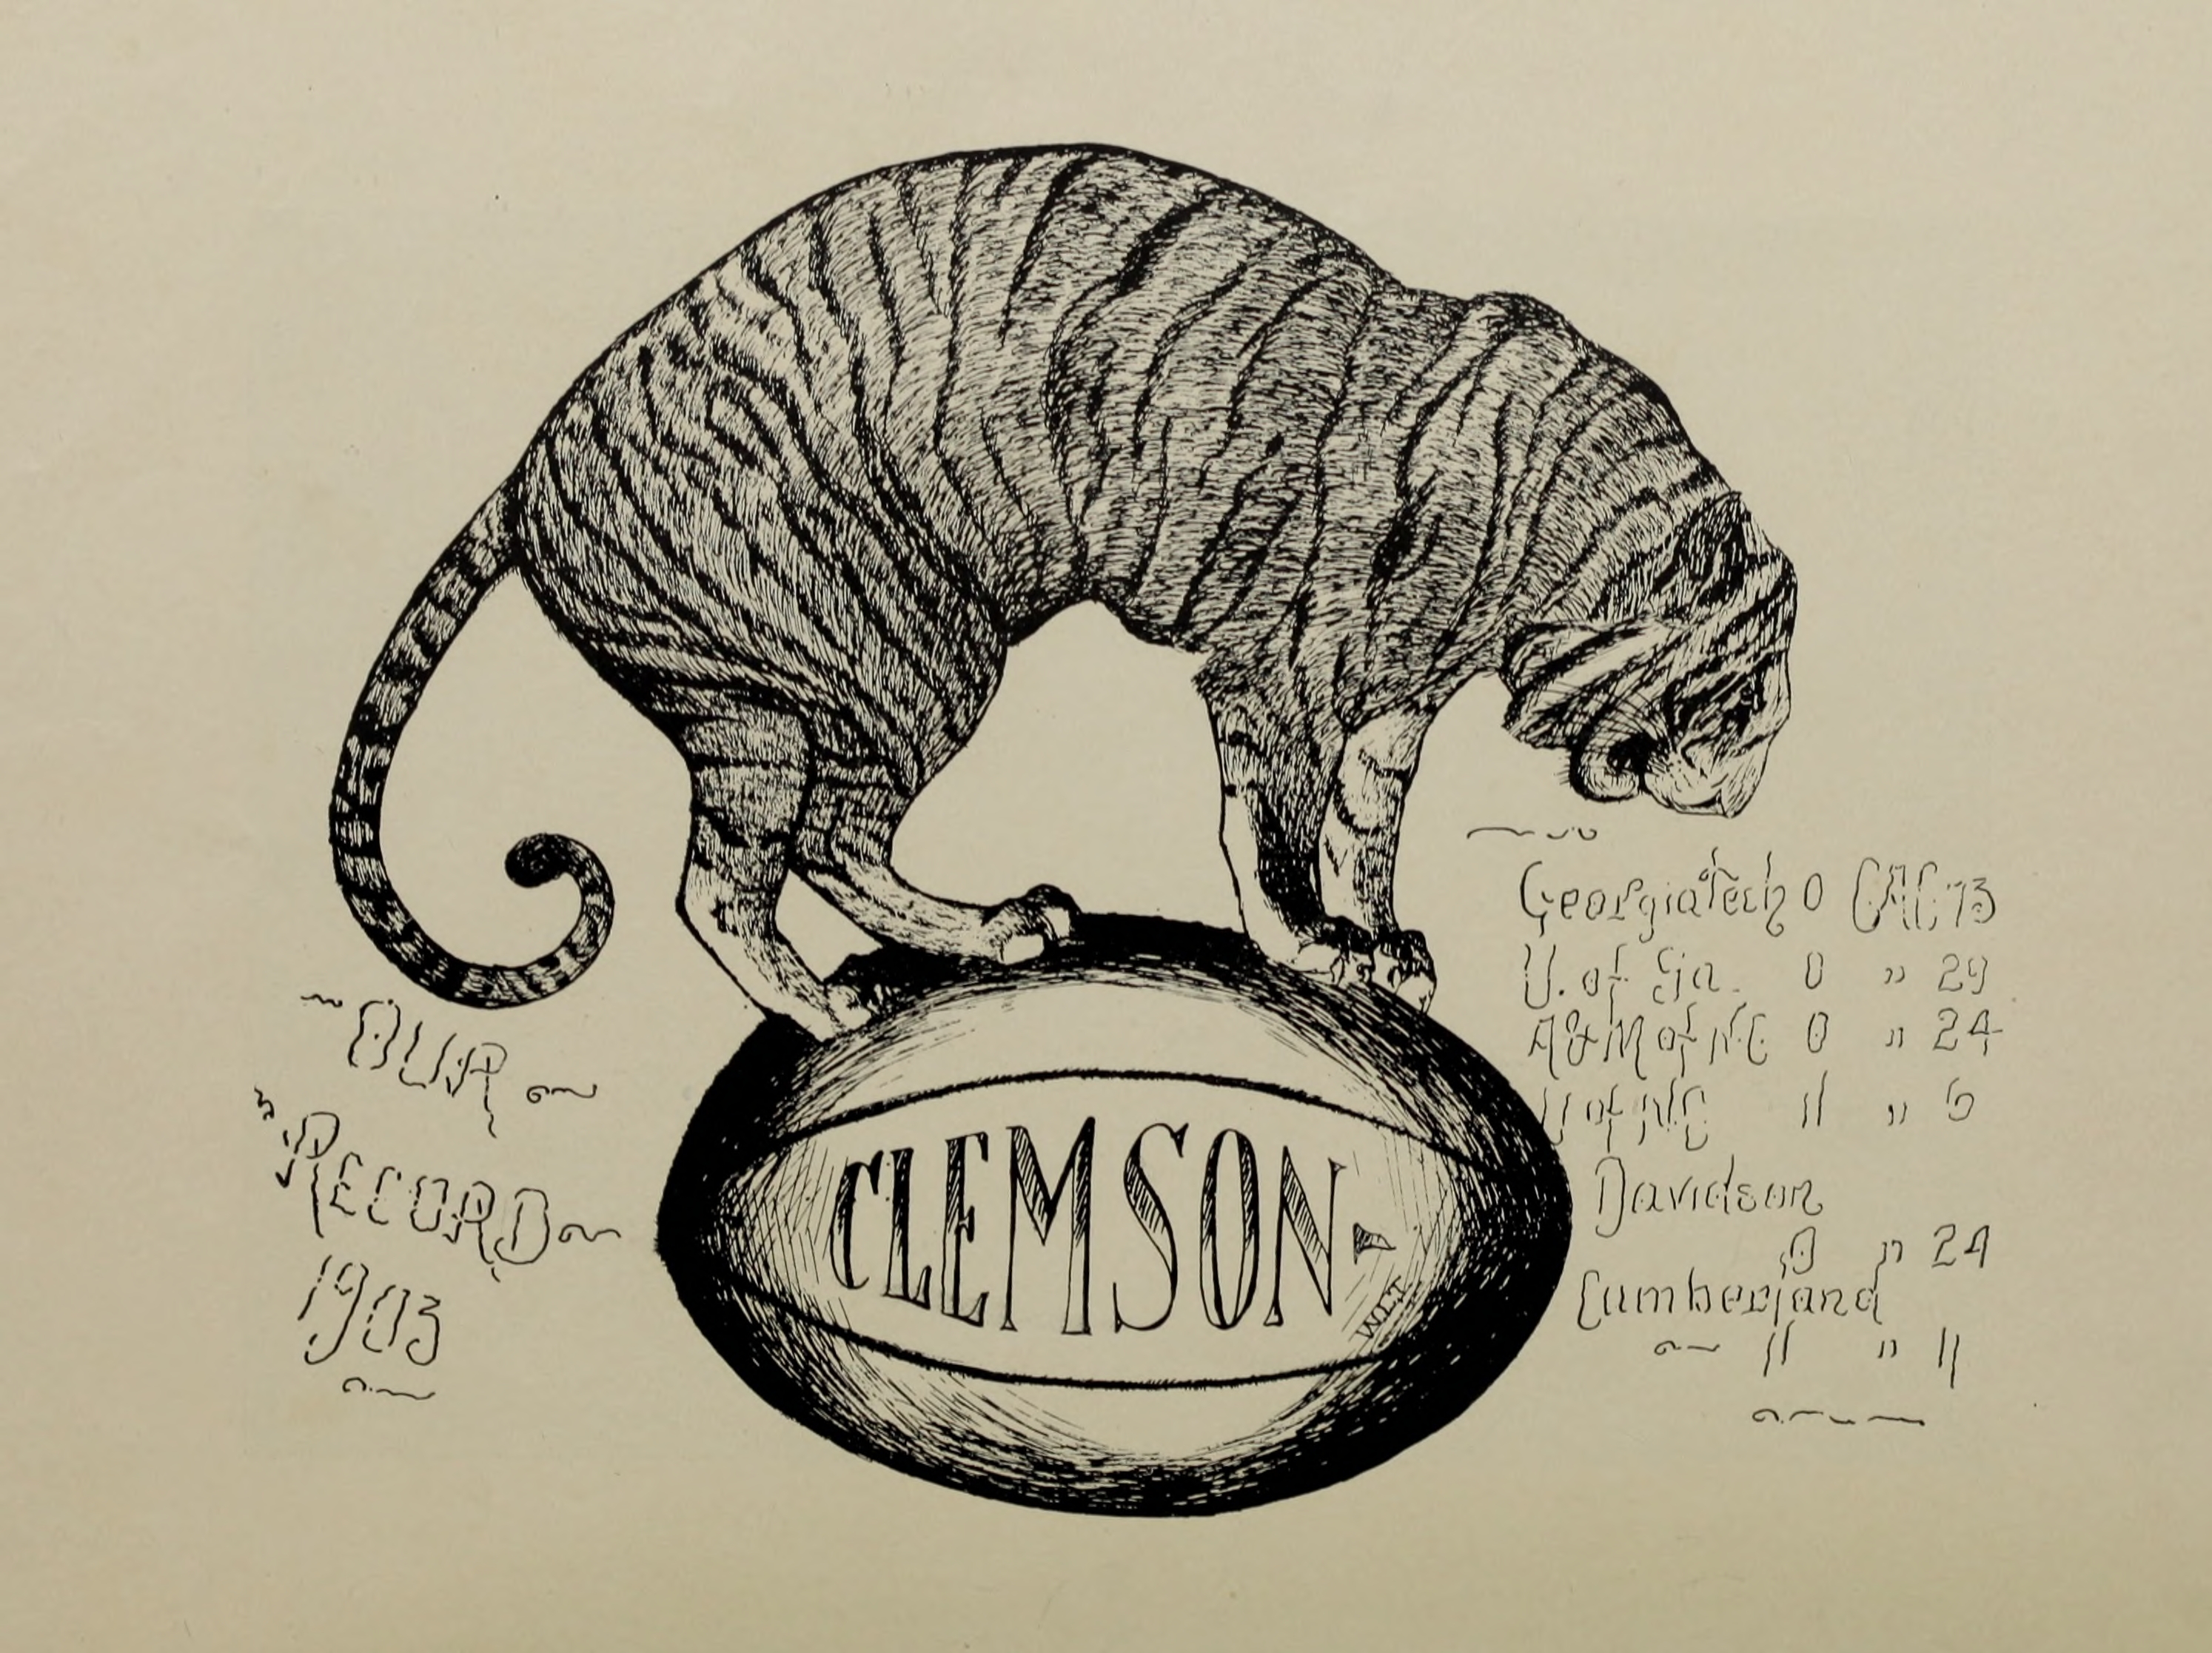 OUR
RECORD
1903
CLEMSON-
WLT
Georgia Tech 0 CAC 73
U. of Ga. 0 " 29
A&M of N.C 0 " 24
U of NC 11 " 6
Davidson
0 " 24
Cumberland
11 " 11